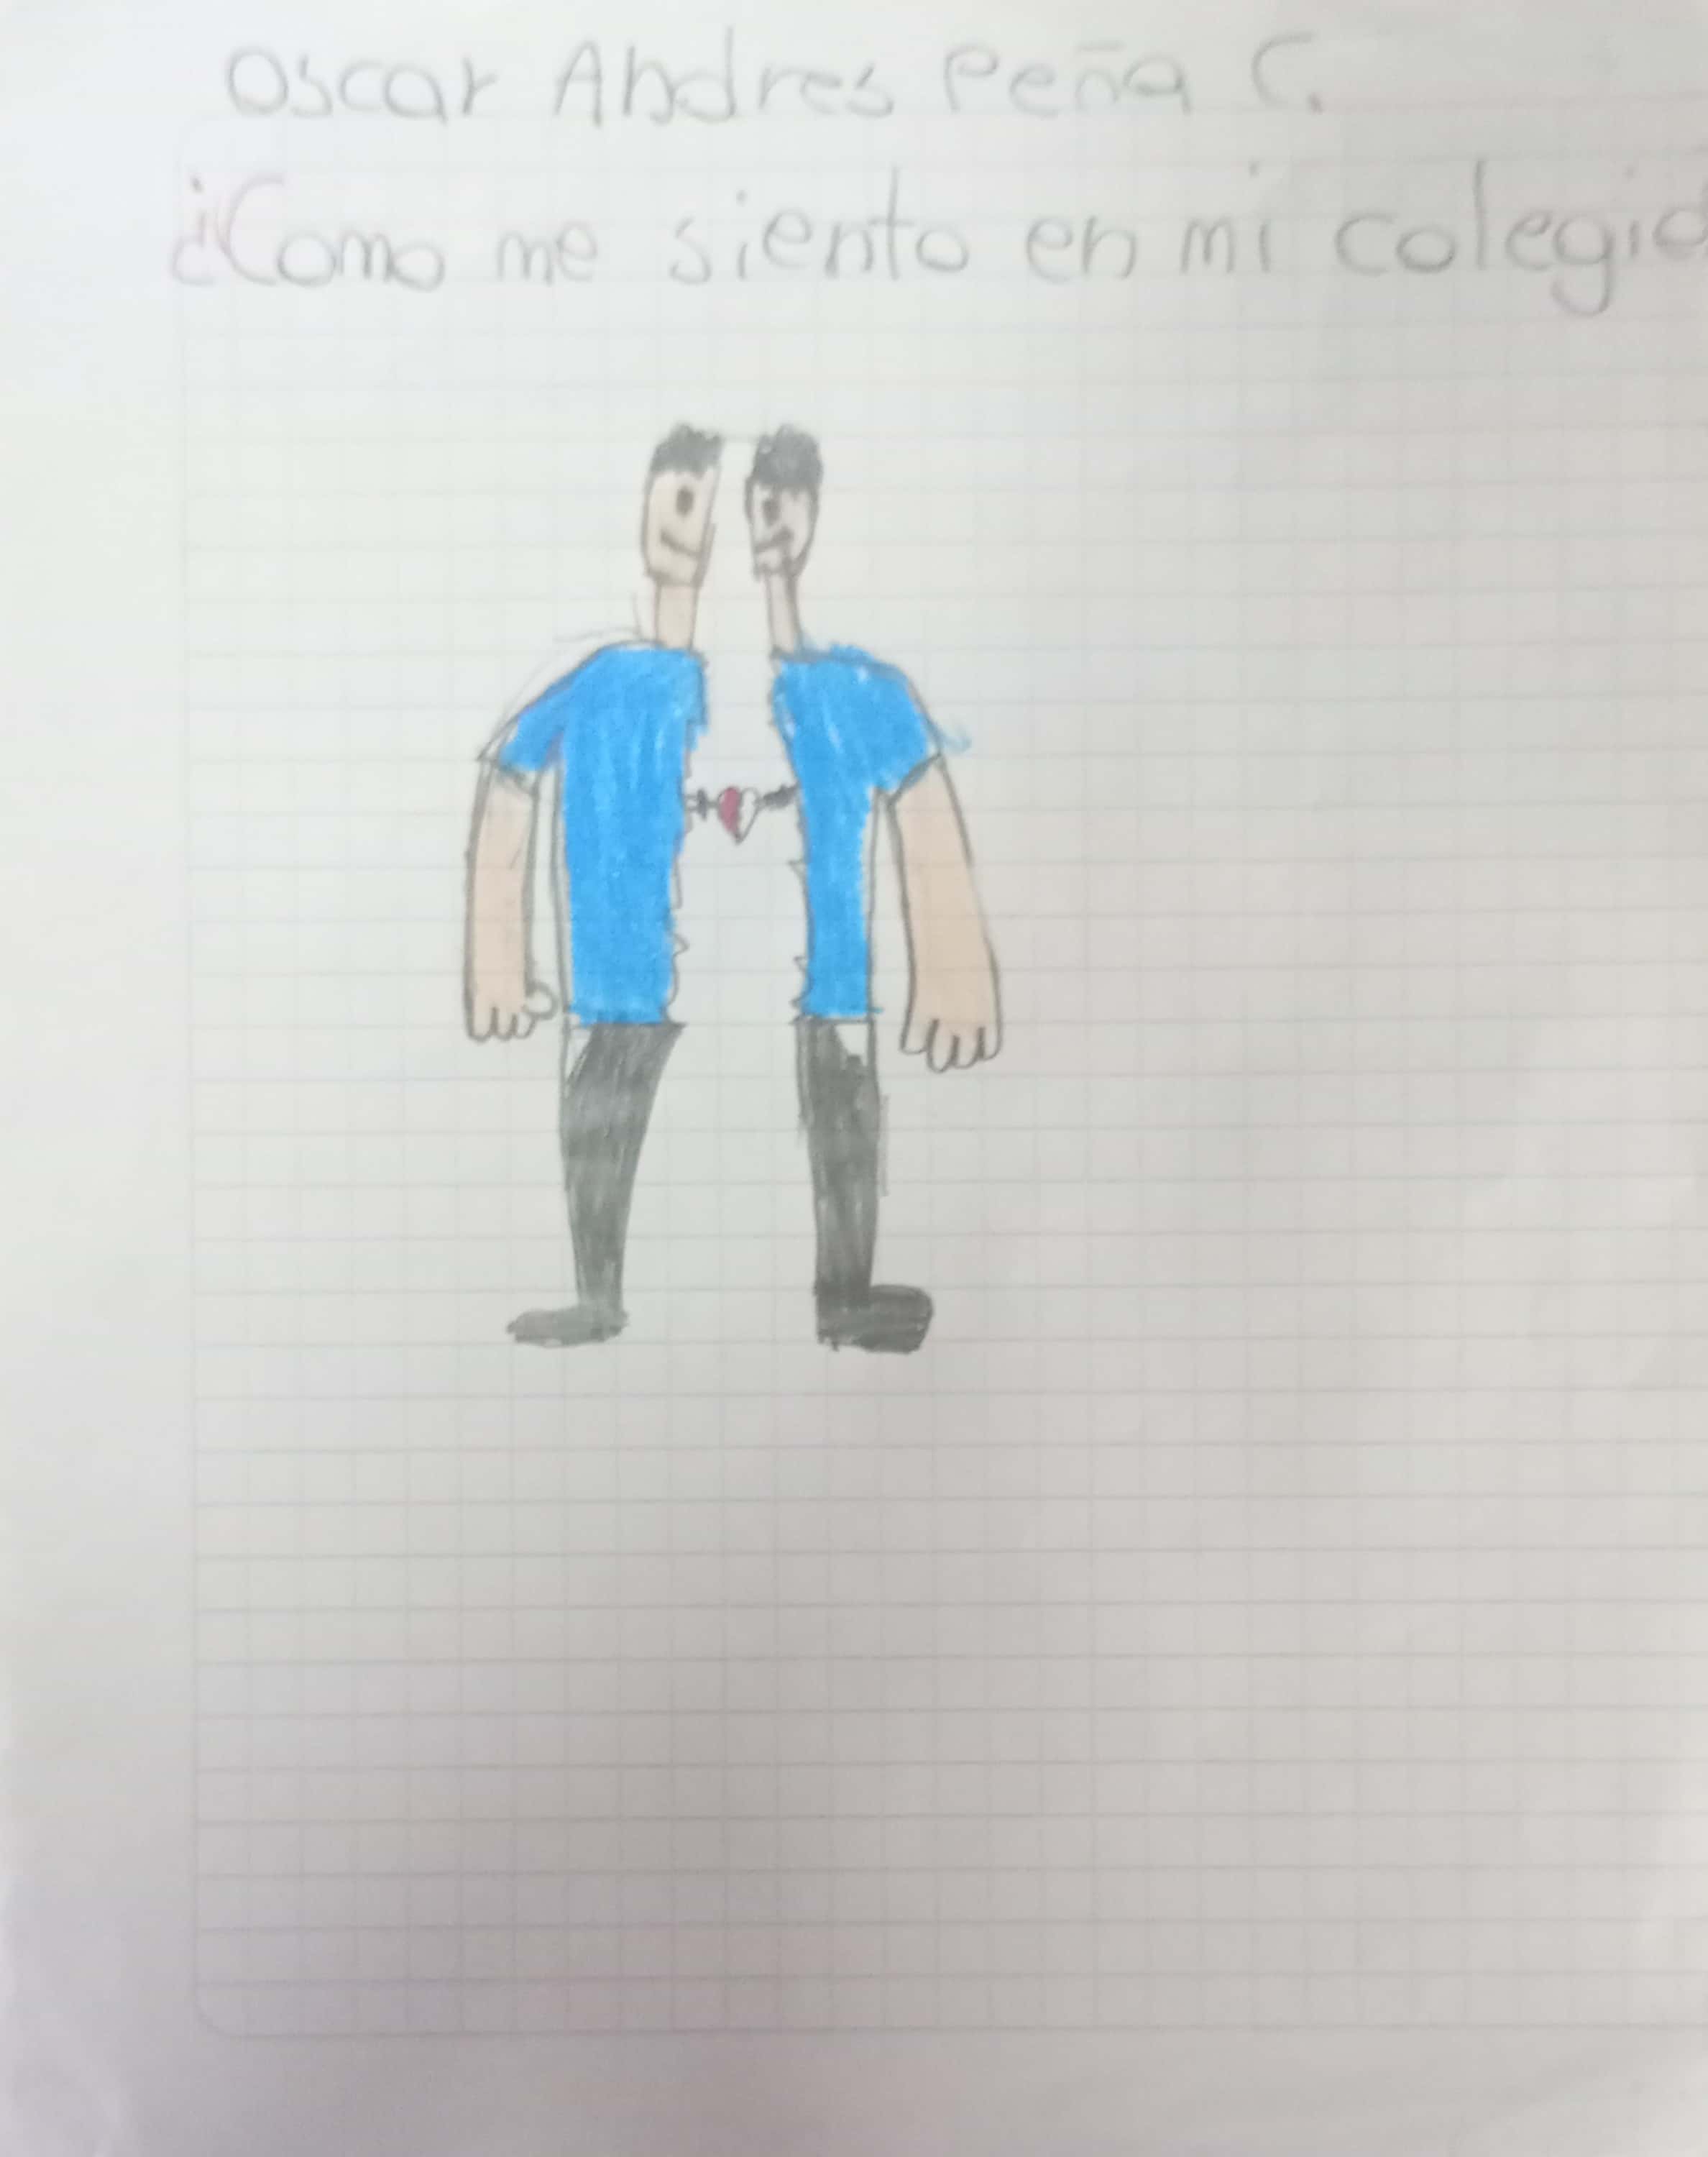 Oscar Andres Peña C.
¿Como me siento en mi colegio